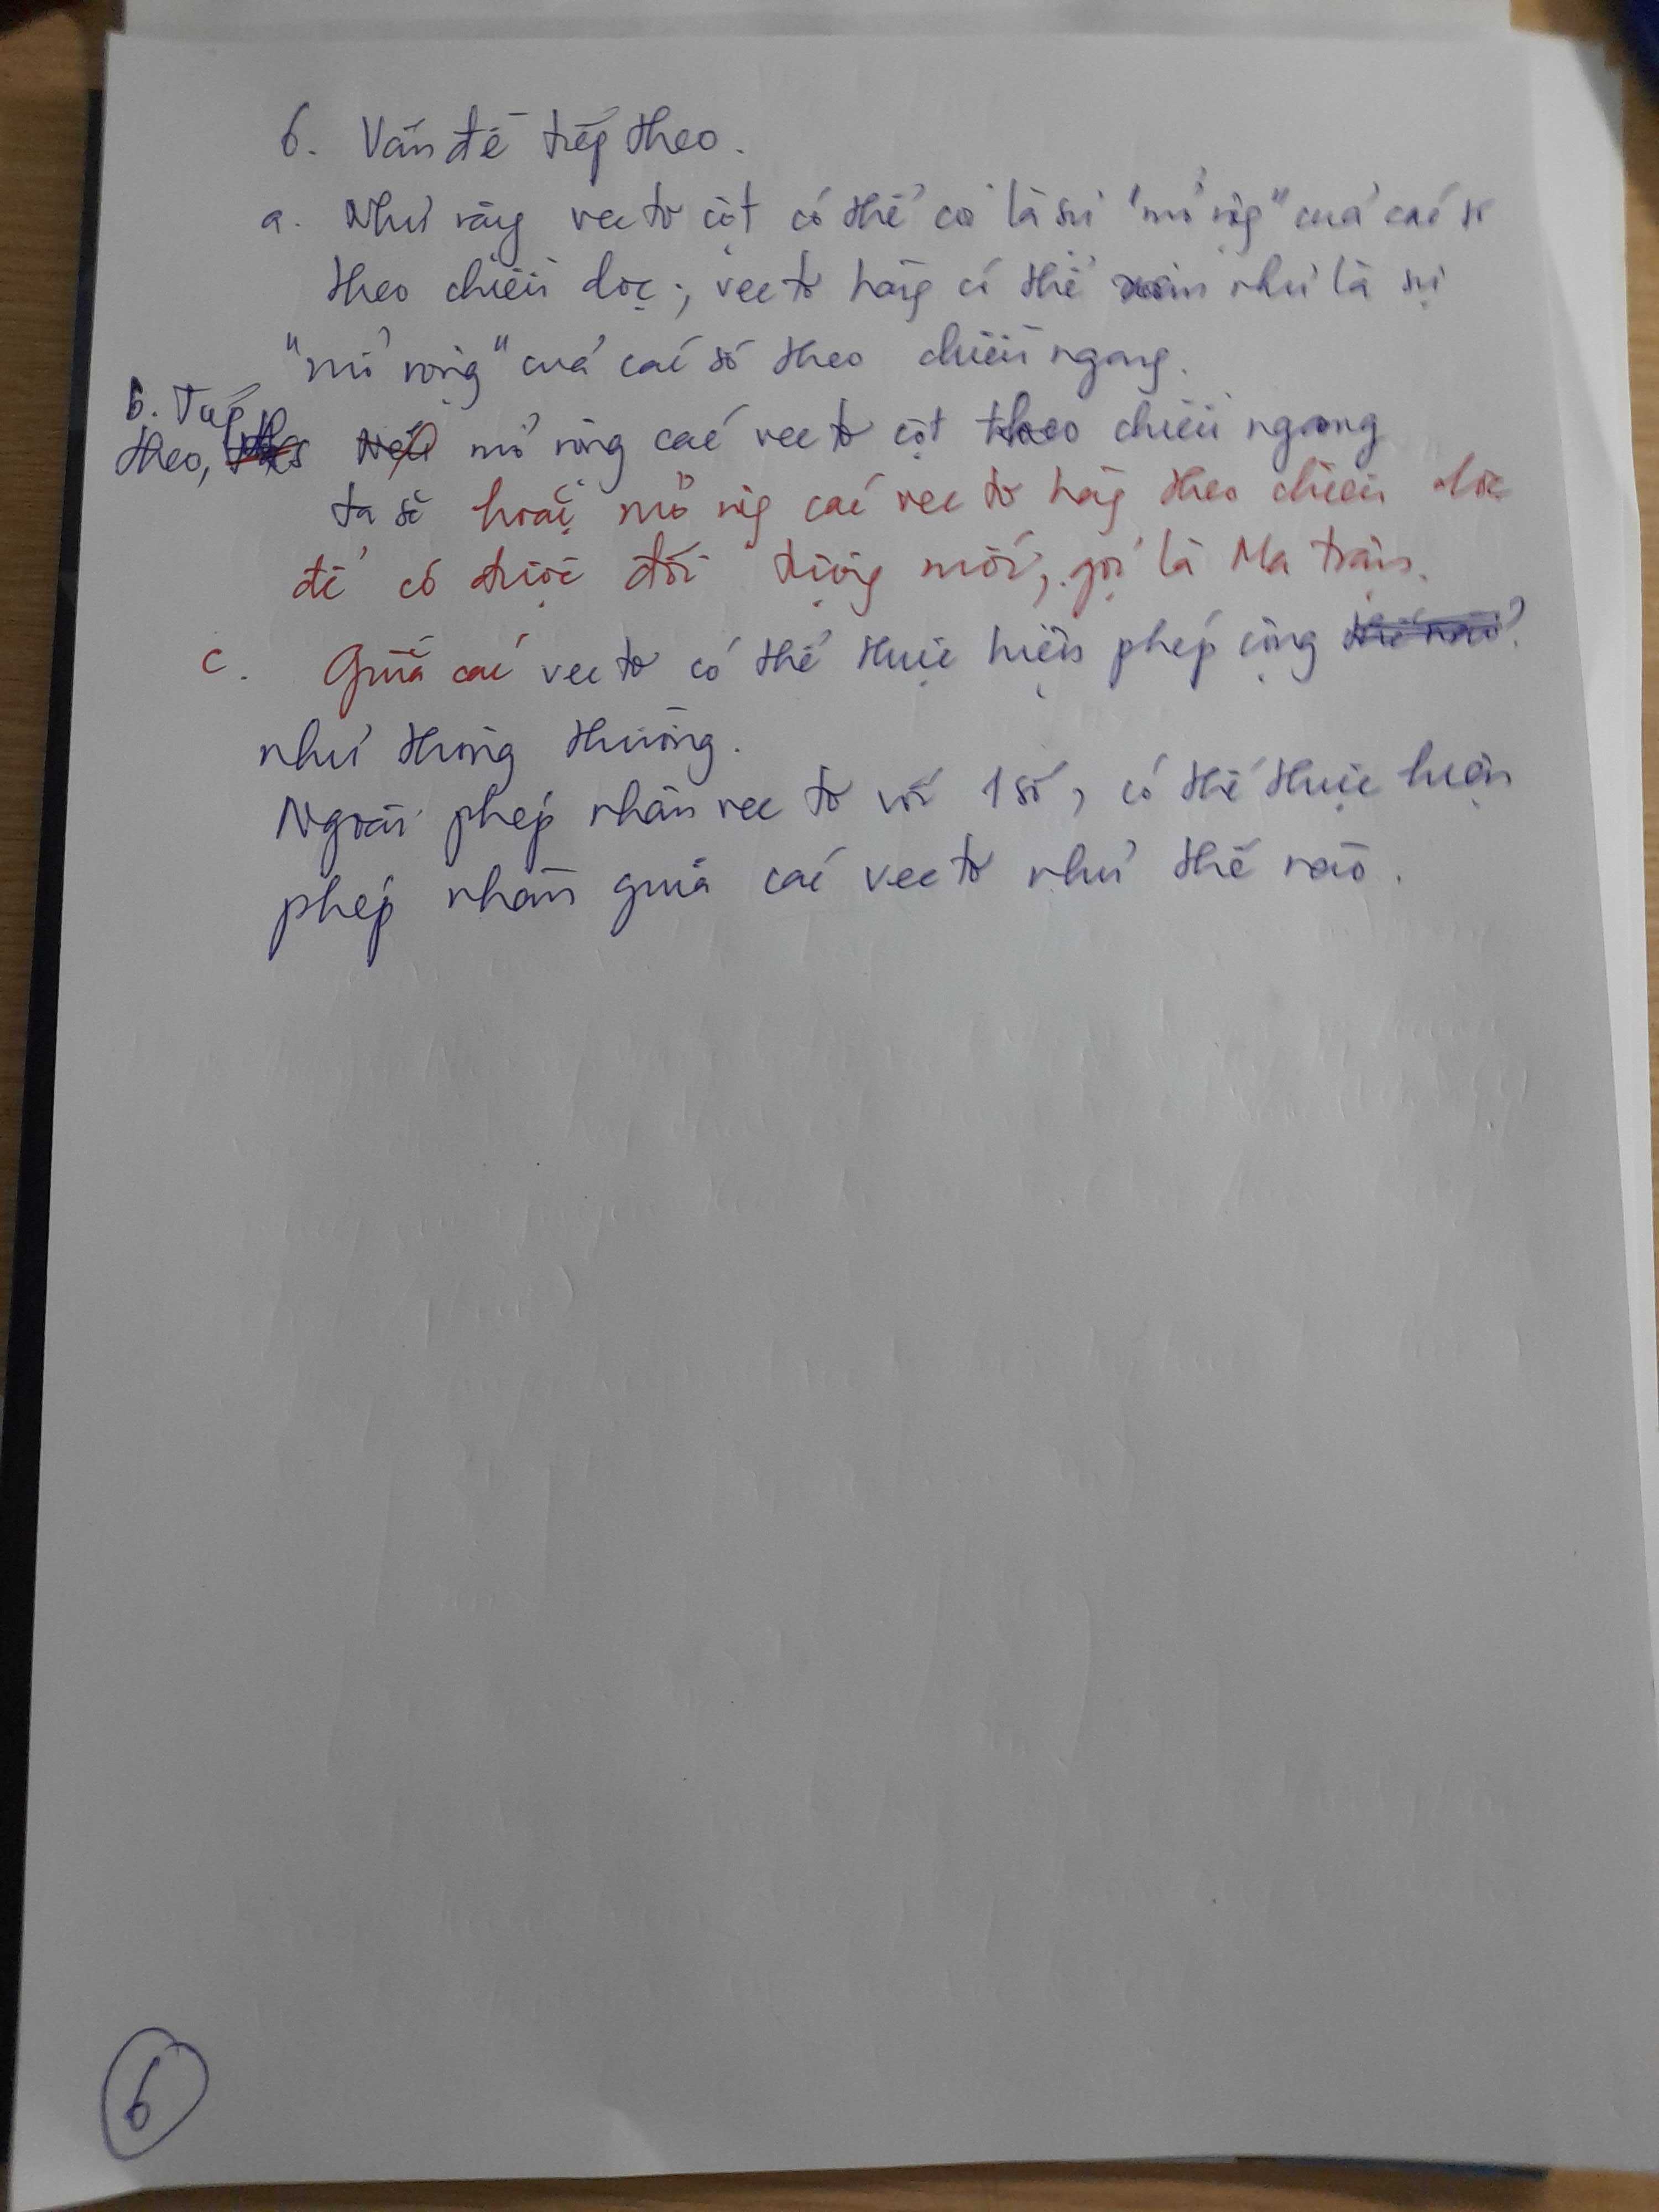 6. Vấn đề tiếp theo.
a. Như vậy vectơ cột có thể coi là sự "mở rộng" của các số
theo chiều dọc; vectơ hàng có thể xem như là sự
"mở rộng" của các số theo chiều ngang.
b. Tiếp
theo, Nếu mở rộng các vectơ cột theo chiều ngang
ta sẽ hoặc mở rộng các vectơ hàng theo chiều dọc
để có được đối tượng mới, gọi là Ma trận.
c. Giữa các vectơ có thể thực hiện phép cộng thế nào?
như thông thường.
Ngoài phép nhân vectơ với 1 số, có thể thực hiện
phép nhân giữa các vectơ như thế nào.
6